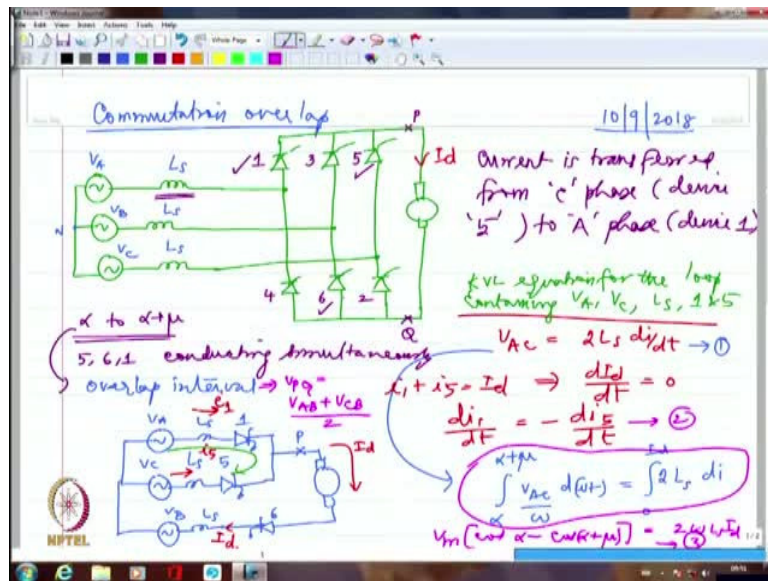 Note1 - Windows Journal
File Edit View Insert Actions Tools Help
Whole Page
Commutation overlap
10/9/2018
P
1 3 5
Id
VA Ls
VB Ls
N
VC Ls
4 6 2
Q
Current is transferred
from 'C' phase (device
'5') to 'A' phase (device 1)
KVL equation for the loop
containing VA, VC, LS, 1 & 5
VAC = 2 Ls di/dt → ①
α to α+μ
5, 6, 1 conducting simultaneously
overlap interval → VPQ =
VAB + VCB
2
i1 + i5 = Id ⇒ dId/dt = 0
di1/dt = - di5/dt → ②
∫α^α+μ VAC/ω d(ωt) = ∫0^Id 2 Ls di
Vm [cos α - cos(α+μ)] = 2ω Ls Id
→ ③
VA Ls 1
i5
VC Ls 5
P
Id
VB Ls 6
Id
NPTEL
1/2